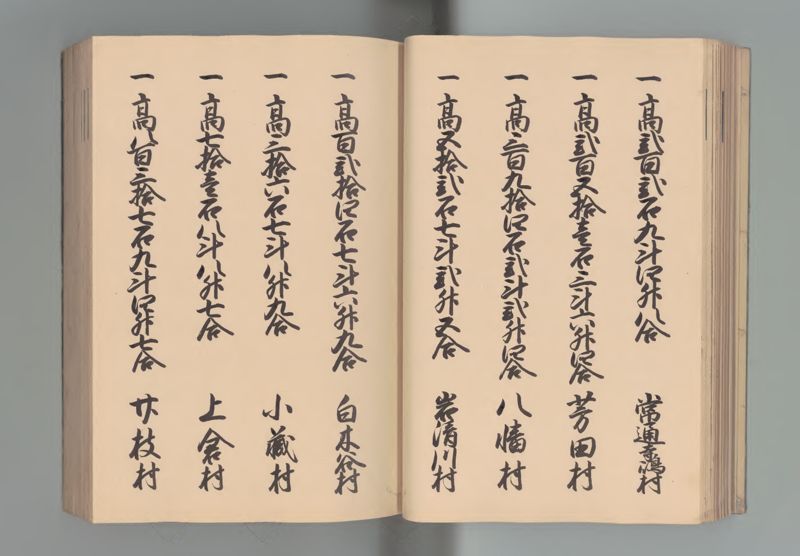 一 高弐百弐石九斗四升八合 常通寺嶋村
一 高弐百五拾壱石三斗六升四合 芳田村
一 高三百九拾四石弐斗弐升四合 八幡村
一 高五拾弐石七斗弐升五合 岩清川村
一 高百弐拾四石七斗六升九合 白木谷村
一 高三拾六石七斗八升九合 小蔵村
一 高七拾壱石八斗八升七合 上倉村
一 高八百三拾七石九斗四升七合 廿枝村